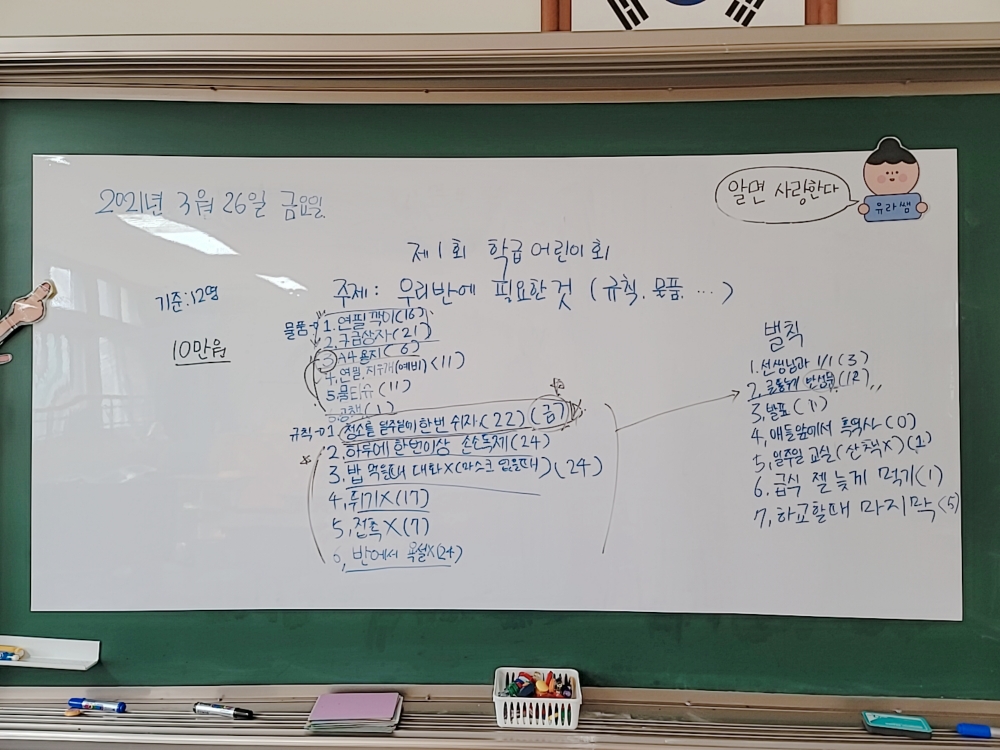 2021년 3월 26일 금요일
알면 사랑한다
유라쌤
제1회 학급어린이회
주제: 우리반에 필요한 것 (규칙, 물품, ...)
기준:12명
10만원
물품→ 1. 연필깍이(16)
2. 구급상자(21)
3. A4용지(6)
4. 연필, 지우개(예비)(11)
5. 물티슈(11)
6. 공책(1)
규칙→ 1. 청소를 일주일에 한번 쉬자(22)(금)
2. 하루에 한번이상 손소독제(24)
3. 밥 먹을때 대화X(마스크 없을때)(24)
4. 뛰기X(17)
5. 접촉X(7)
6. 반에서 욕설X(24)
벌칙
1. 선생님과 1/1(3)
2. 반성문(12)
3. 발표(1)
4. 애들앞에서 흑역사(0)
5. 일주일 교실(산책X)(1)
6. 급식 젤 늦게 먹기(1)
7. 하교할때 마지막(5)